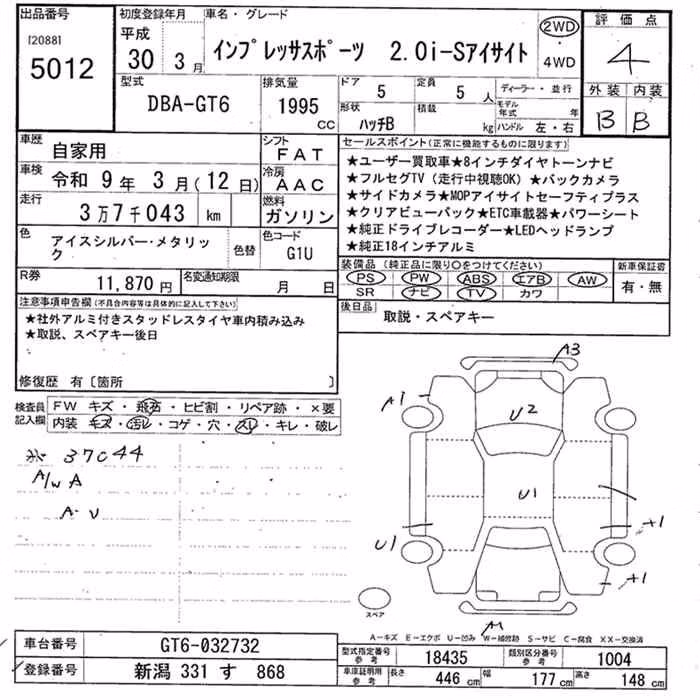 出品番号
[2088]
5012
初度登録年月
平成
30 3月
車名・グレード
インプレッサスポーツ 2.0i-Sアイサイト
2WD
・
4WD
評価点
4
外装 内装
B B
型式
DBA-GT6
排気量
1995
CC
ドア
5
定員
5 人
形状
ハッチB
積載
kg
ディーラー・並行
モデル年式 年
ハンドル 左・右
車歴
自家用
シフト
FAT
車検
令和 9年 3月(12日)
冷房
AAC
走行
3万7千043 km
燃料
ガソリン
色
アイスシルバー・メタリック
色替
色コード
G1U
R券
11,870円
名変通知期限
月 日
セールスポイント(正常に機能するものに限ります)
★ユーザー買取車★8インチダイヤトーンナビ
★フルセグTV(走行中視聴OK)★バックカメラ
★サイドカメラ★MOPアイサイトセーフティプラス
★クリアビューパック★ETC車載器★パワーシート
★純正ドライブレコーダー★LEDヘッドランプ
★純正18インチアルミ
装備品(純正品に限り○をつけてください)
PS PW ABS エアB AW
SR ナビ TV カワ
新車保証書
有・無
後日品
取説・スペアキー
注意事項申告欄(不具合内容等は具体的に記入して下さい)
★社外アルミ付きスタッドレスタイヤ車内積み込み
★取説、スペアキー後日
修復歴 有〔箇所 〕
検査員記入欄
FW キズ・飛石・ヒビ割・リペア跡・×要
内装 キズ・汚レ・コゲ・穴・スレ・キレ・破レ
37044
A/W A
A・U
A3
A1
U2
U1
U1
A1
A1
スペア
A-キズ E-エクボ U-凹み W-補修跡 S-サビ C-腐食 XX-交換済
車台番号
GT6-032732
登録番号
新潟 331 す 868
型式指定番号
参考
18435
類別区分番号
参考
1004
車庫証明用
参考
長さ 446 cm
幅 177 cm
高さ 148 cm